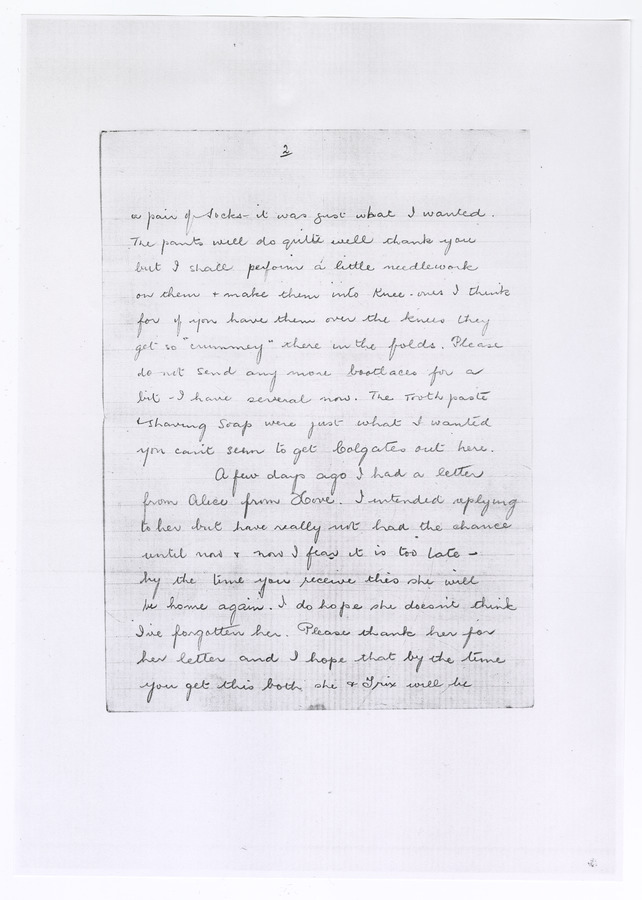 2
a pair of socks - it was just what I wanted.
The pants will do quite well thank you
but I shall perform a little needlework
on them + make them into Knee-ones I think
for if you have them over the knees they
get so "crummey" there in the folds. Please
do not send any more bootlaces for a
bit - I have several now. The Tooth paste
+ Shaving Soap were just what I wanted
you can't seem to get Colgates out here.
A few days ago I had a letter
from Alice from Hove. I intended replying
to her but have really not had the chance
until now + now I fear it is too late -
by the time you receive this she will
be home again. I do hope she doesn't think
I've forgotten her. Please thank her for
her letter and I hope that by the time
you get this both she + Trix will be